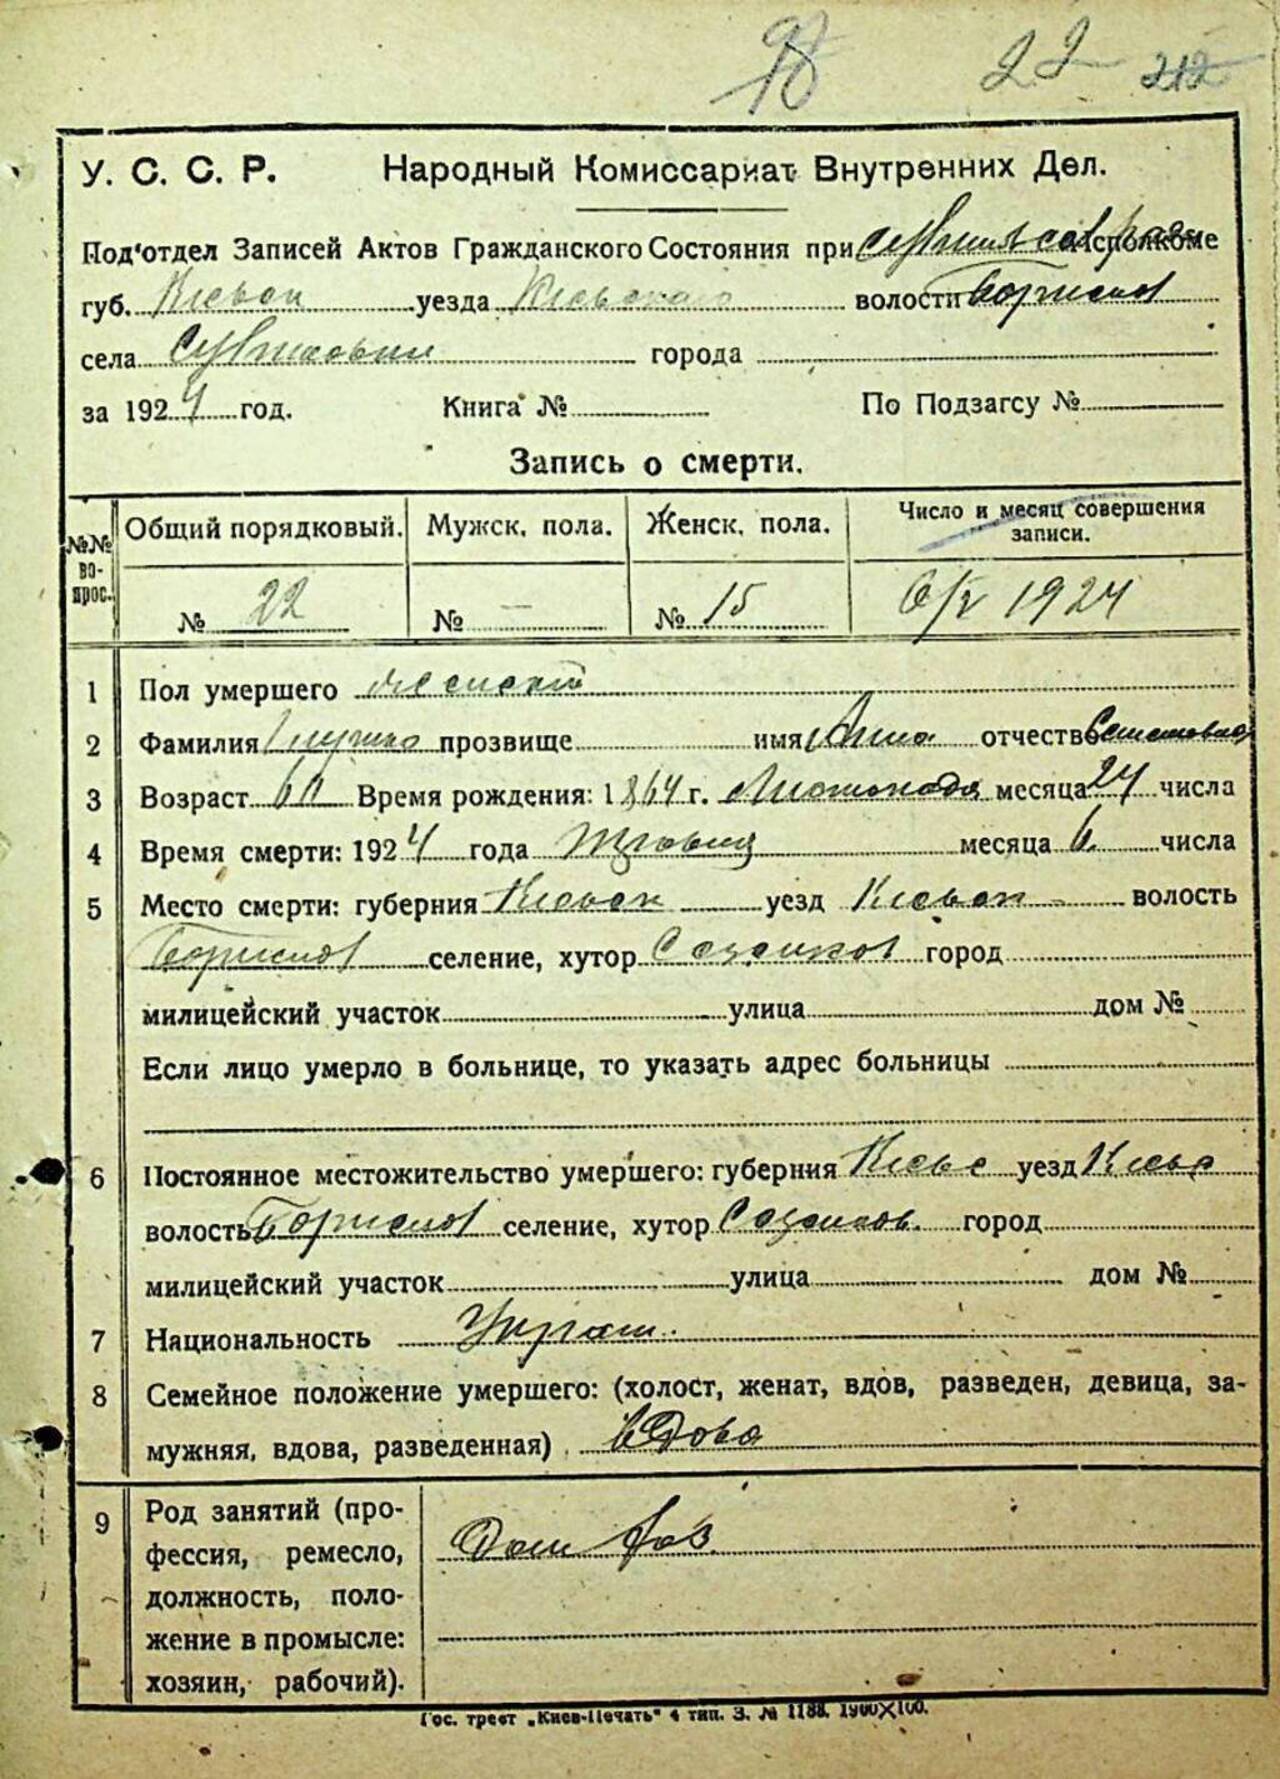 98 22 212
У. С. С. Р. Народный Комиссариат Внутренних Дел.
Под'отдел Записей Актов Гражданского Состояния при исполкоме
губ. Киевск уезда Киевского волости Бориспол
села города
за 1924 год. Книга № По Подзагсу №
Запись о смерти.
№№ вопрос. Общий порядковый. Мужск. пола. Женск. пола. Число и месяц совершения записи.
№ 22 № — № 15 6/X 1924
1 Пол умершего женский
2 Фамилия прозвище имя Анна отчество
3 Возраст 60 Время рождения: 1864 г. Листопада месяца 24 числа
4 Время смерти: 1924 года Жговня месяца 6 числа
5 Место смерти: губерния Киевск уезд Киевск волость
Бориспол селение, хутор Сазонков город
милицейский участок улица дом №
Если лицо умерло в больнице, то указать адрес больницы
6 Постоянное местожительство умершего: губерния Киевс уезд Киевс
волость Бориспол селение, хутор Сазонков. город
милицейский участок улица дом №
7 Национальность Украин.
8 Семейное положение умершего: (холост, женат, вдов, разведен, девица, за-
мужняя, вдова, разведенная) вдова
9 Род занятий (про-
фессия, ремесло,
должность, поло-
жение в промысле:
хозяин, рабочий).
Дом хоз.
Гос. трест „Киев-Печать" 4 тип. З. № 1188. 1900×100.